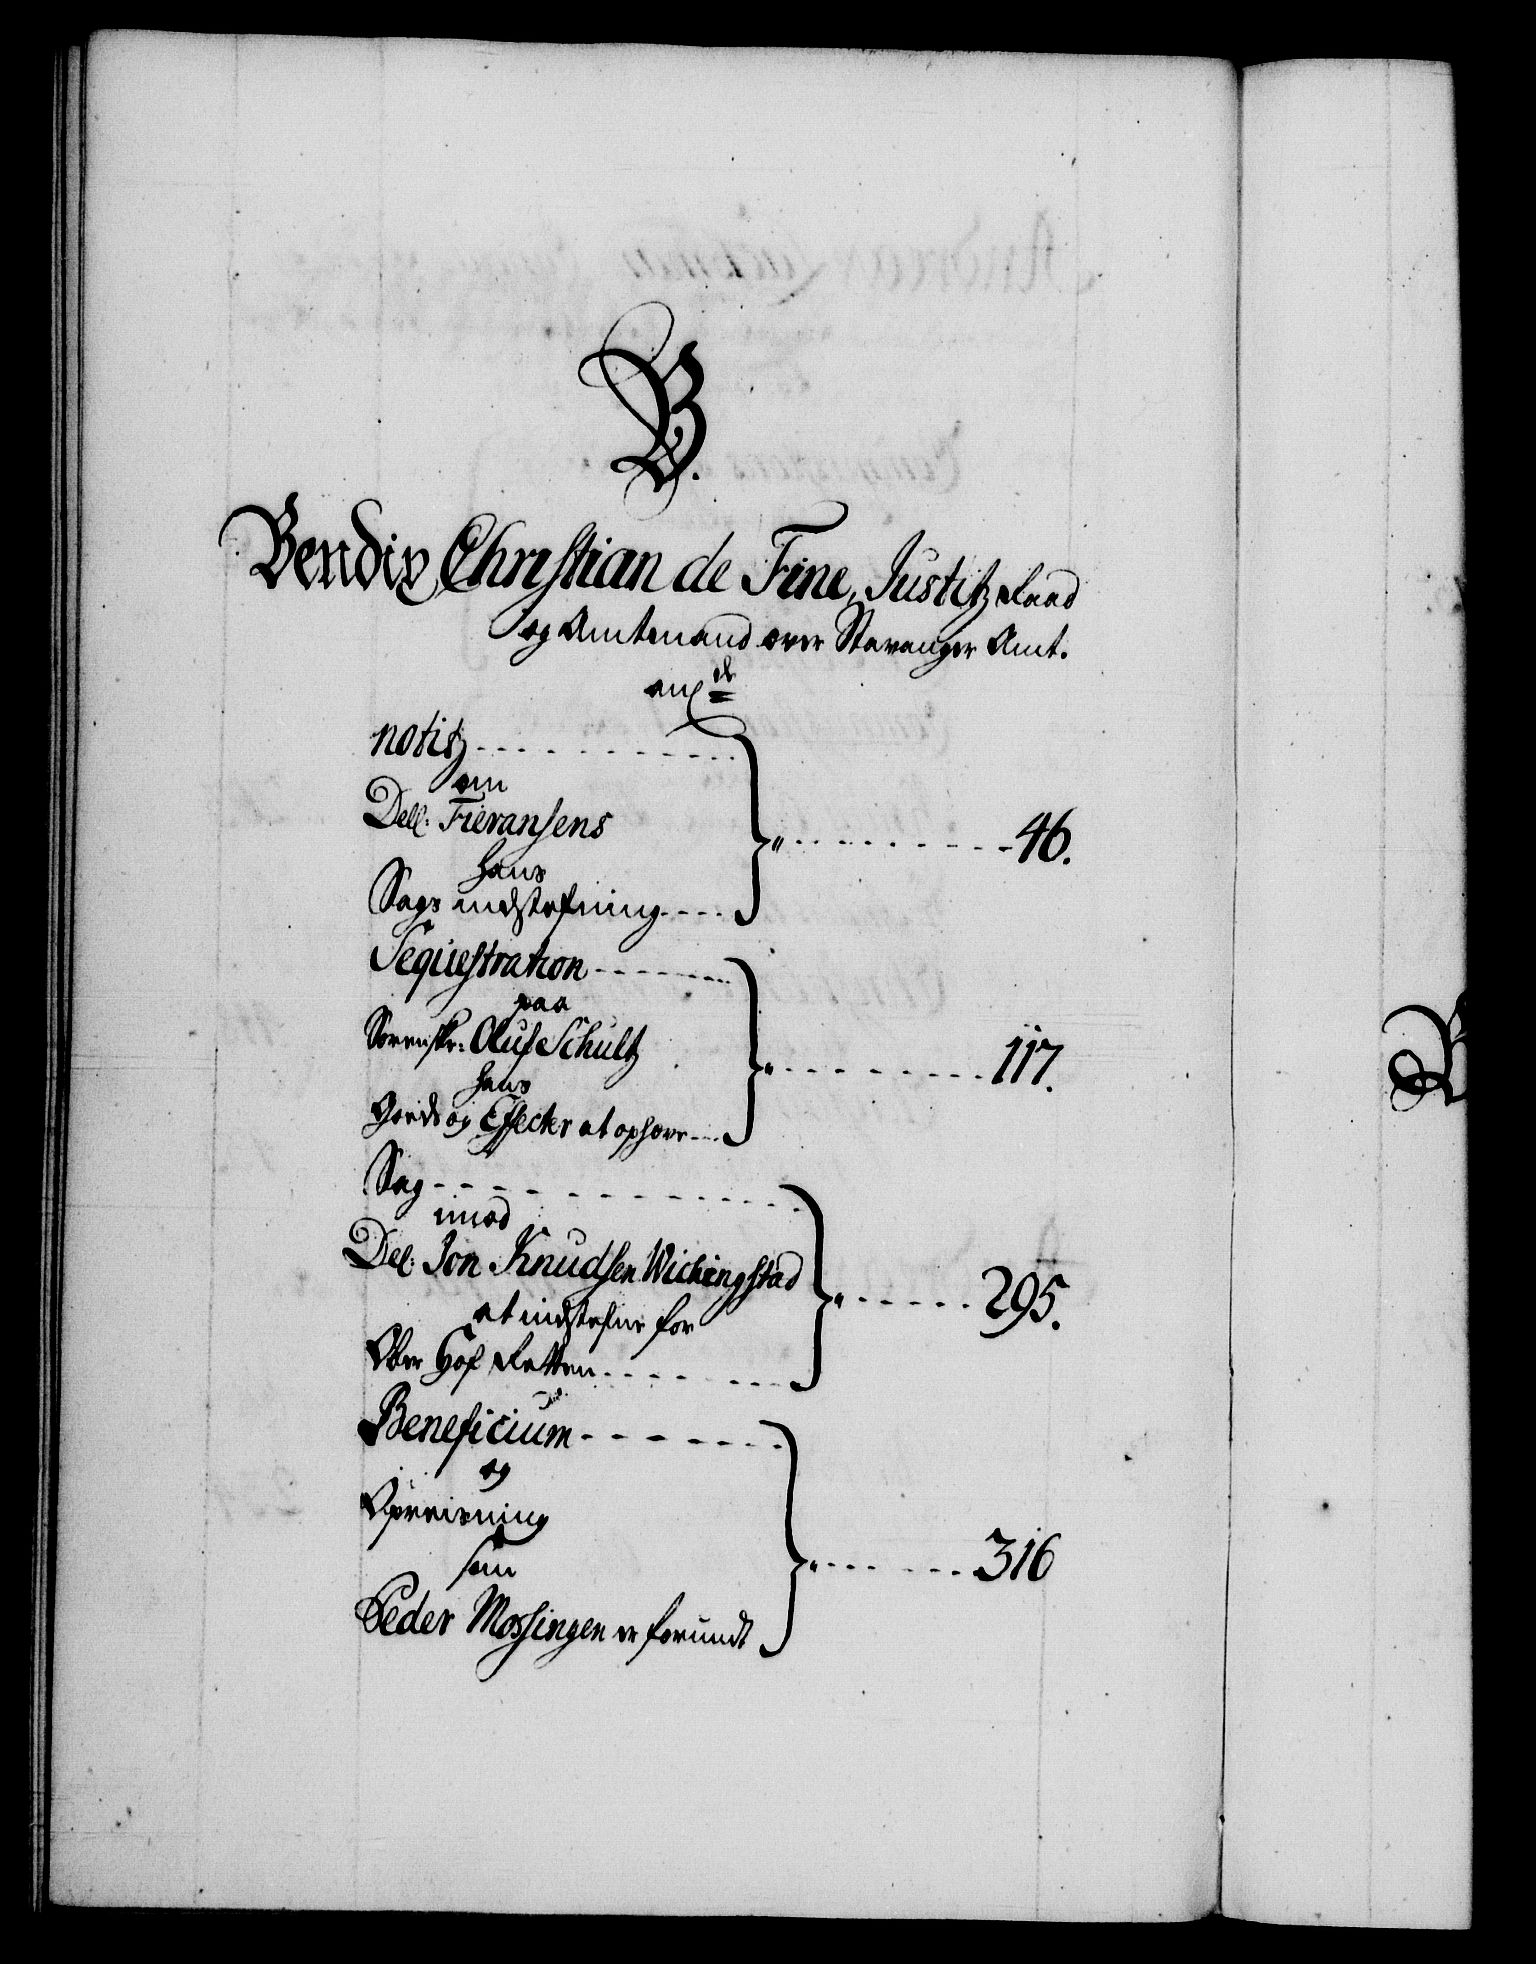 B.
Bendix Christian de Fine, Justitz Raad
og Amtmand over Stavanger Amt.
notitz
om
Dell: Fieransens
hans
Sags indstefning
46.
Sequestration
paa
Sorenskr: Oluf Schultz
hans
og Effecter at ophøre
117.
Sag
imod
Del: Jon Knudsen Wichingstad
at indstefne for
Ober Hof Retten
295.
Beneficium
og
Opreisning
som
Peder Mossingen er forundt
316